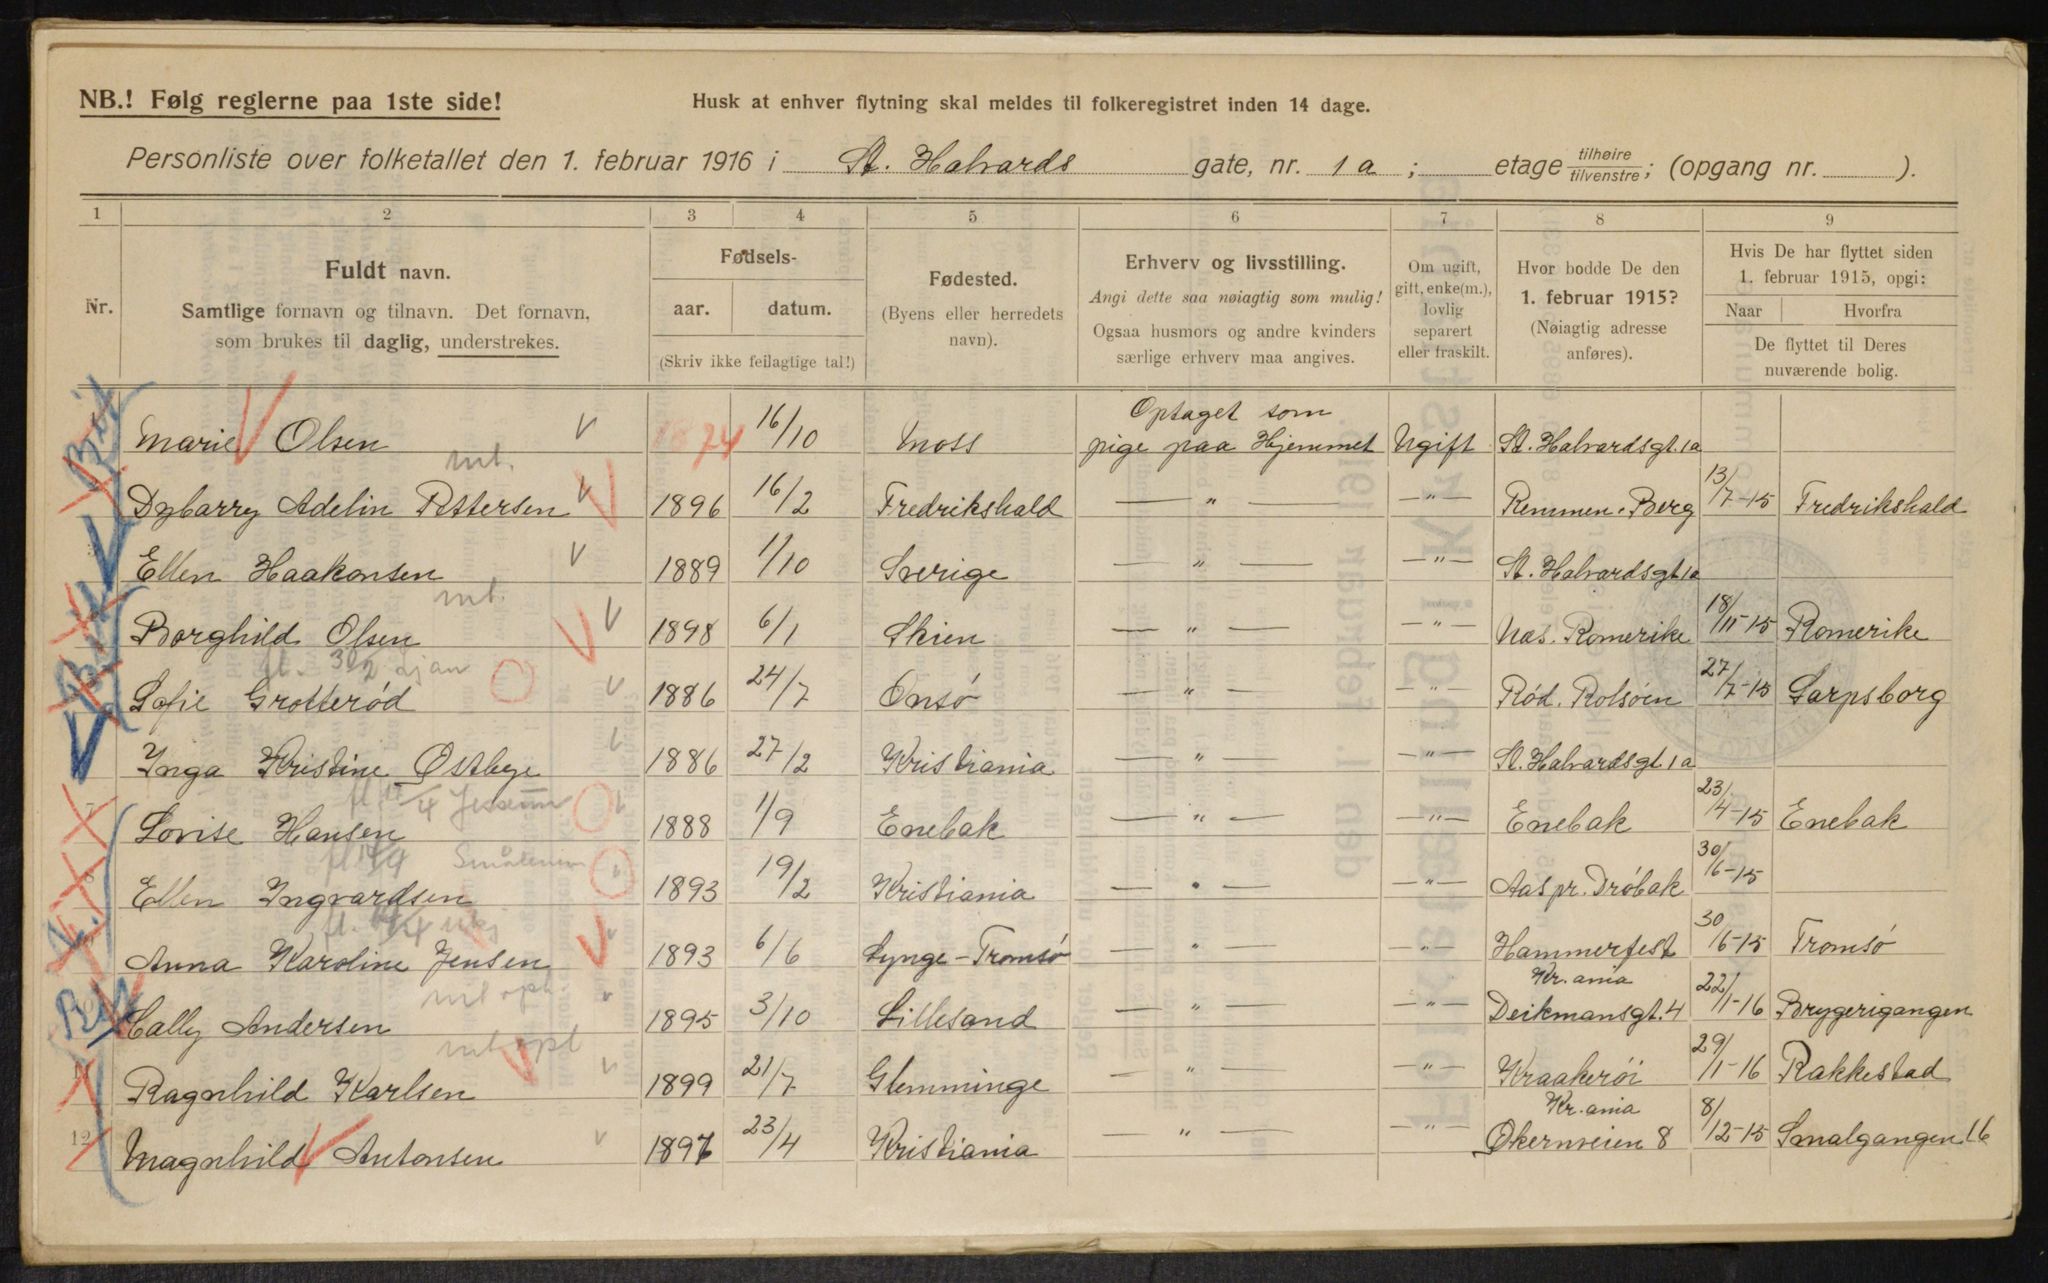 NB.! Følg reglerne paa 1ste side!
Husk at enhver flytning skal meldes til folkeregistret inden 14 dage.
Personliste over folketallet den 1. februar 1916 i St. Halvards gate, nr. 1a; etage tilhøire/tilvenstre; (opgang nr. ).
1 2 3 4 5 6 7 8 9
Nr.
Fuldt navn.
Samtlige fornavn og tilnavn. Det fornavn,
som brukes til daglig, understrekes.
Fødsels-
aar. datum.
(Skriv ikke feilagtige tal!)
Fødested.
(Byens eller herredets
navn).
Erhverv og livsstilling.
Angi dette saa nøiagtig som mulig!
Ogsaa husmors og andre kvinders
særlige erhverv maa angives.
Om ugift,
gift, enke(m.),
lovlig
separert
eller fraskilt.
Hvor bodde De den
1. februar 1915?
(Nøiagtig adresse
anføres).
Hvis De har flyttet siden
1. februar 1915, opgi:
Naar Hvorfra
De flyttet til Deres
nuværende bolig.
Marie Olsen 1874 16/10 Moss Optaget som pige paa Hjemmet Ugift St. Halvardsgt. 1a
mt.
Dybarry Adelin Pettersen 1896 16/2 Fredrikshald — " — — " — Remmen. Berg 13/7-15 Fredrikshald
Ellen Haakonsen 1889 1/10 Sverige — " — — " — St. Halvardsgt 1a
mt.
Borghild Olsen 1898 6/1 Skien — " — — " — Næs. Romerike 18/11-15 Romerike
Sofie Grotterød 1886 24/7 Onsø — " — — " — Rød. Rolsøen 27/7-15 Sarpsborg
Inga Kristine Østbye 1886 27/2 Kristiania — " — — " — St. Halvardsgt 1a
7 Lovise Hansen 1888 1/9 Enebak — " — — " — Enebak 23/4-15 Enebak
8 Ellen Ingvardsen 1893 19/2 Kristiania — " — — " — Aas pr. Drøbak 30/6-15
Anna Karoline Jensen 1893 6/6 Lynge-Tromsø — " — — " — Hammerfest 30/6-15 Tromsø
10 Cally Andersen 1895 3/10 Lillesand — " — — " — Kr.ania Deikmansgt. 4 22/1-16 Brygerigangen
11 Ragnhild Karlsen 1899 21/7 Glemminge — " — — " — Kraakerøi 29/1-16 Rakkestad
12 Magnhild Antonsen 1897 23/4 Kristiania — " — — " — Kr.ania Økernveien 8 8/12-15 Smalgangen 16